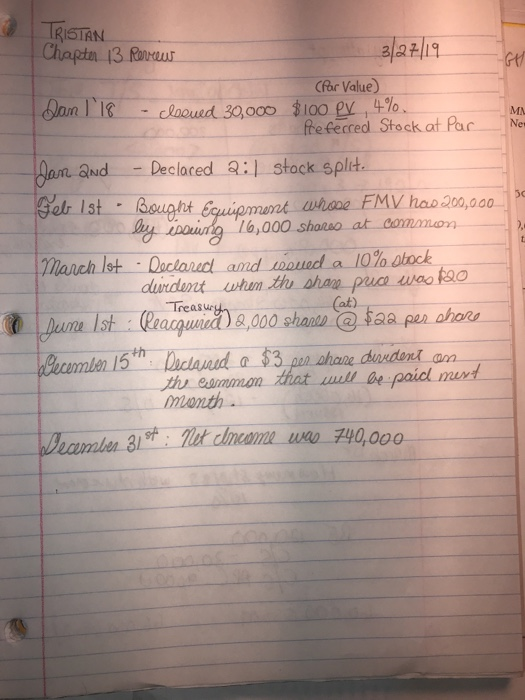 TRISTAN
Chapter 13 Review 3/27/19
(Par Value)
Jan 1 '18 - Issued 30,000 $100 PV, 4%.
Preferred Stock at Par
Jan 2nd - Declared 2:1 stock split.
Feb 1st - Bought Equipment whose FMV has 200,000
by issuing 16,000 shares at common
March 1st - Declared and issued a 10% stock
divident when the share price was $20
Treasury (at)
June 1st : (Reacquired) 2,000 shares @ $22 per share
December 15th : Declared a $3 per share divident on
the common that will be paid next
month.
December 31st : Net Income was 740,000
GH
MM
Ne